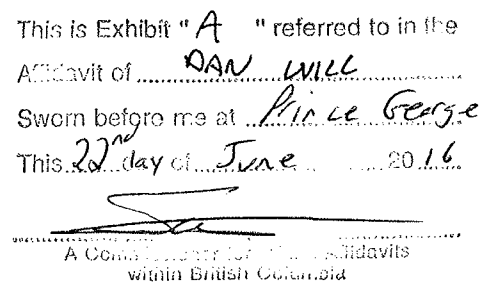 This is Exhibit "A" referred to in the
Affidavit of DAN WILL
Sworn before me at Prince George
This 22nd day of June 2016
A Commissioner for Affidavits
within British Columbia